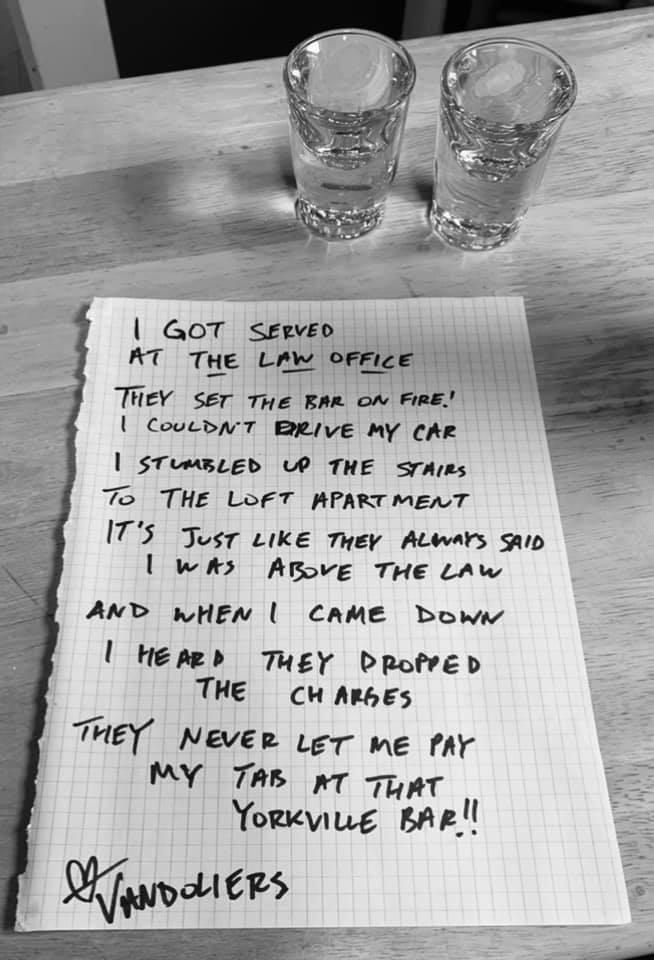 I GOT SERVED
AT THE LAW OFFICE
THEY SET THE BAR ON FIRE!
I COULDN'T DRIVE MY CAR
I STUMBLED UP THE STAIRS
TO THE LOFT APARTMENT
IT'S JUST LIKE THEY ALWAYS SAID
I WAS ABOVE THE LAW
AND WHEN I CAME DOWN
I HEARD THEY DROPPED
THE CHARGES
THEY NEVER LET ME PAY
MY TAB AT THAT
YORKVILLE BAR!!
♡ VANDOLIERS